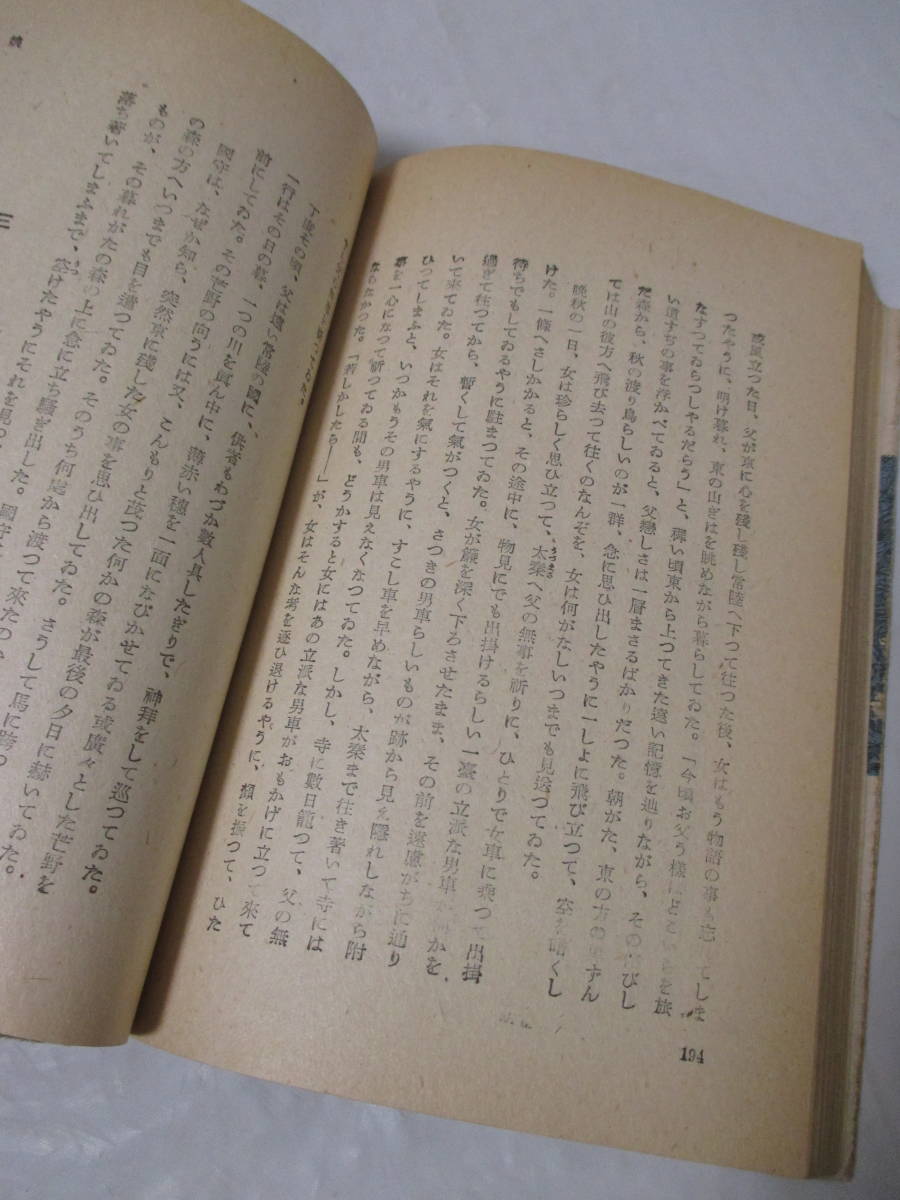 凉風立つた日、父が京に心を殘し殘し常陸へ下つて往つた後、女はもう物語の事も忘 てしま
つたやうに、明け暮れ、東の山ぎはを眺めながら暮らしてゐた。「今頃お父う樣はどこいらを旅
なすつてゐらつしやるだらう」と、稚い頃東から上つてきた遠い記憶を辿りながら、その びし
い道すぢの事を浮かべてゐると、父戀しさは一層まさるばかりだつた。朝がた、東の方の ずん
だ森から、秋の渡り鳥らしいのが一群、急に思ひ出したやうに一しよに飛び立つて、空を暗くし
ては山の彼方へ飛び去つて往くのなんぞを、女は何がなしいつまでも見送つてゐた。
晩秋の一日、女は珍らしく思ひ立つて、太秦へ父の無事を祈りに、ひとりで女車に乘つて出掛
うづまさ
けた。一條へさしかかると、その途中に、物見にでも出掛けるらしい一臺の立派な男車が何かを
待ちでもしてゐるやうに駐まつてゐた。女が簾を深く下ろさせたまま、その前を遠慮がちに通り
過ぎて往つてから、暫くして氣がつくと、さつきの男車らしいものが跡から見え隱れしながら附
いて來てゐた。女はそれを氣にするやうに、すこし車を早めながら、太秦まで往き著いて寺には
ひつてしまふと、いつかもうその男車は見えなくなつてゐた。しかし、寺に數日籠つて、父の無
事を一心になつて祈つてゐる間も、どうかすると女にはあの立派な男車がおもかげに立つて來て
ならなかつた。「若しかしたら――」が、女はそんな考を逐ひ退けるやうに、頰を振つて、ひた
194
丁度その頃、父は遠い常陸の國に、供者もわづか數人具したきりで、神拜をして巡つてゐた。
一行はその日の暮、一つの川を眞ん中に、薄赤い穗を一面になびかせてゐる或廣々とした芒野を
前にしてゐた。その芒野の向うには又、こんもりと茂つた何かの森が最後の夕日に赫いてゐた。
國守は、なぜか知ら、突然京に殘した女の事を思ひ出してゐた。さうして馬に跨つ
の森の方へいつまでも目を遣つてゐた。そのうち何處から渡つて來たのか
ものが、その暮れがたの森の上に急に立ち騷ぎ出した。國守
落ち著いてしまふまで、空けたやうにそれを見つ
三